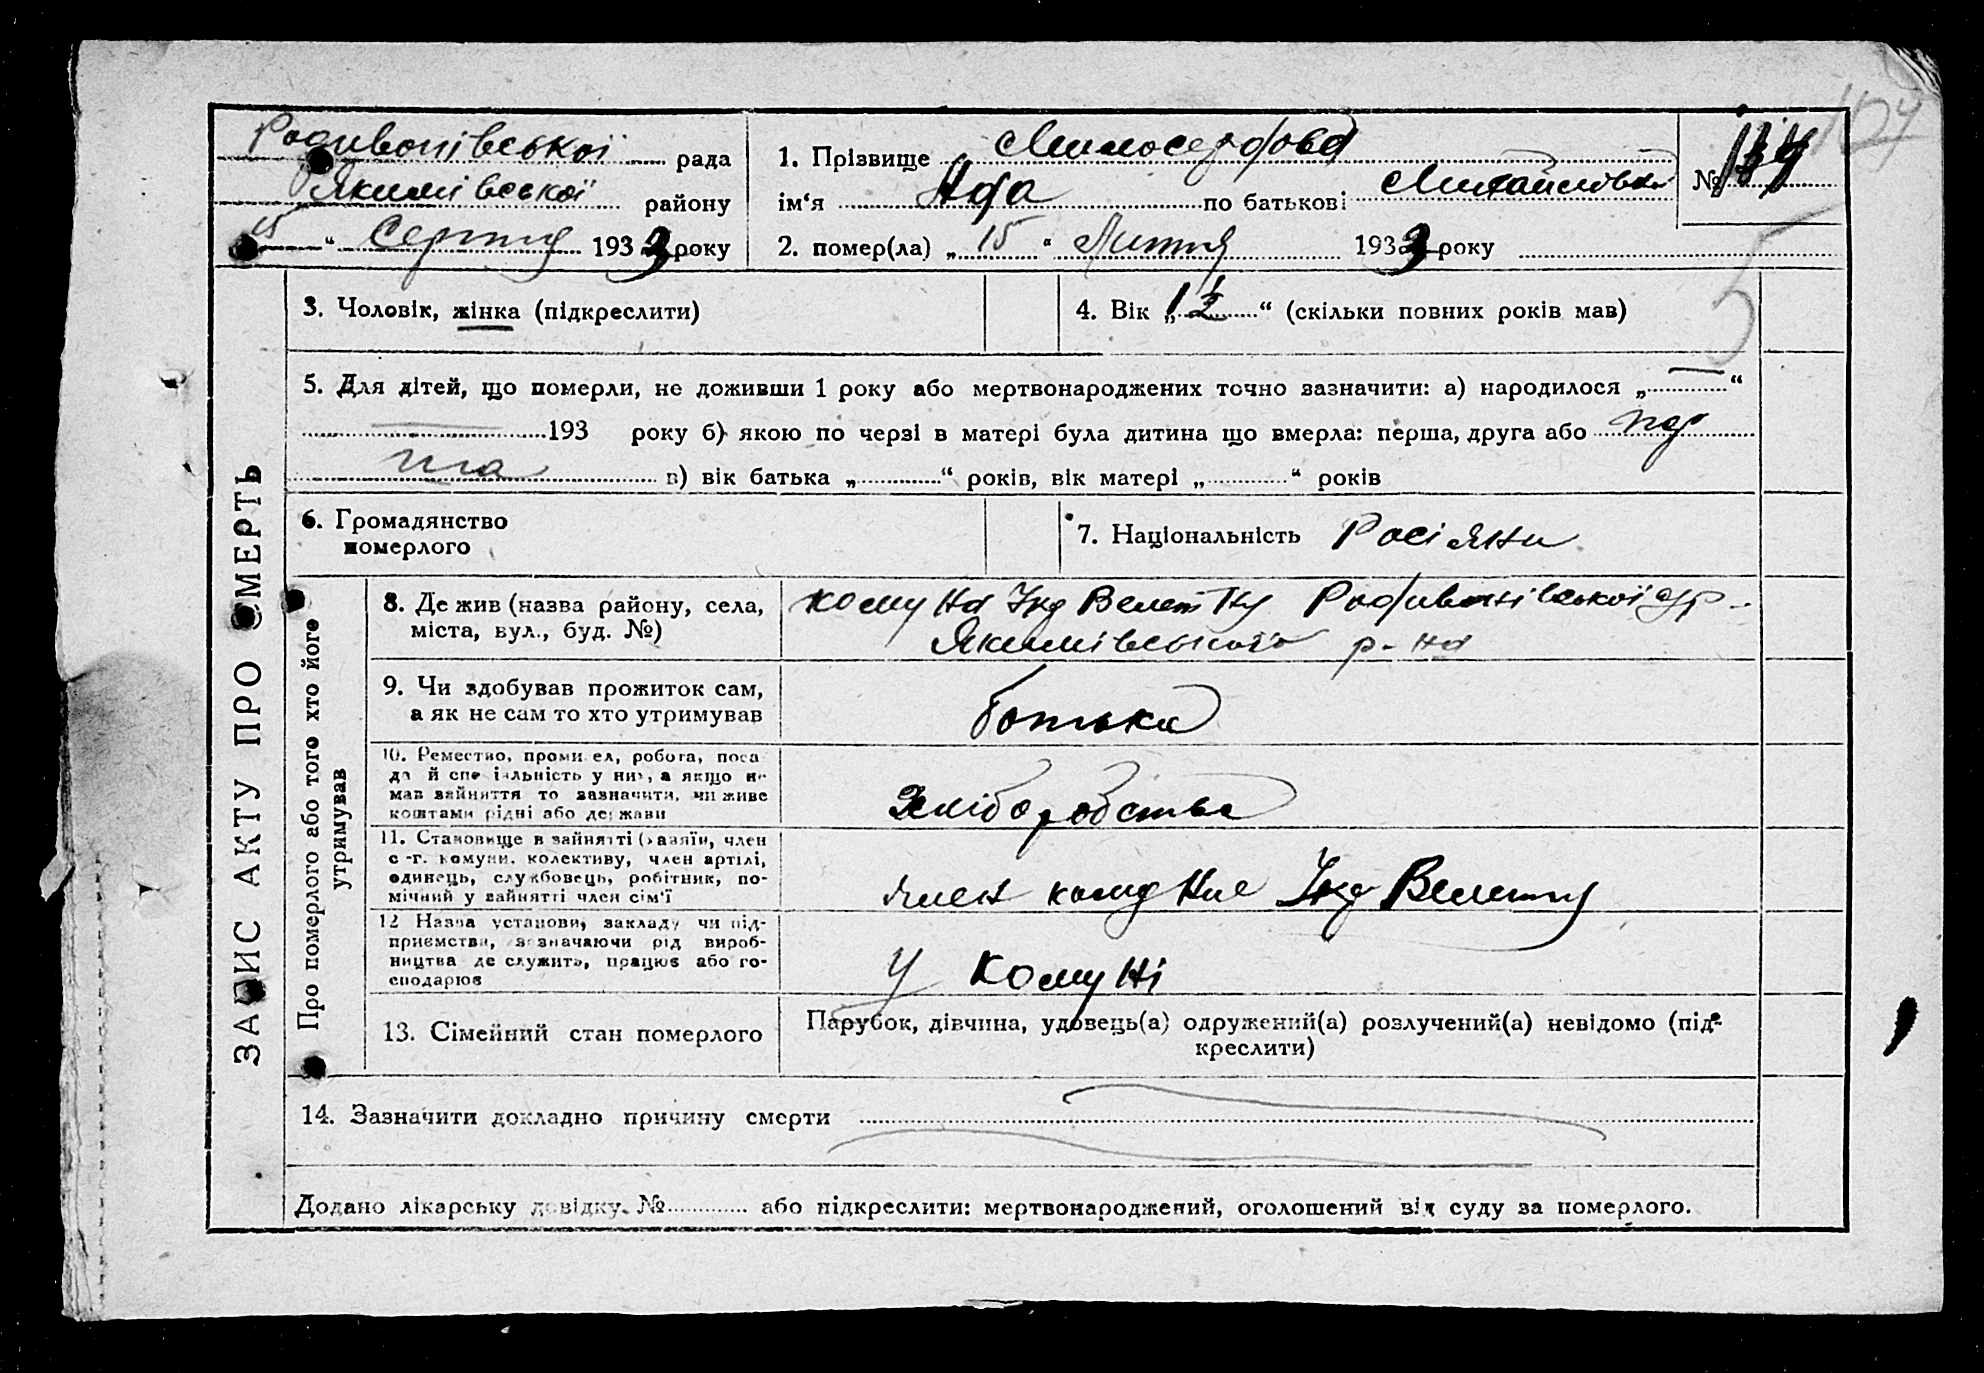 Родивонівської рада
Якимівської району
15 " Серпня 1933 року
1. Прізвище Милосердова
ім'я Ада по батькові Михайлівна
№ 134
2. помер(ла) „ 15 " Липня 1933 року
3. Чоловік, жінка (підкреслити)
4. Вік „ 1 1/2 " (скільки повних років мав)
5. Для дітей, що померли, не доживши 1 року або мертвонароджених точно зазначити: а) народилося „ — "
193 року б) якою по черзі в матері була дитина що вмерла: перша, друга або
в) вік батька „ " років, вік матері „ " років
6. Громадянство
померлого
7. Національність Росіяни
ЗАПИС АКТУ ПРО СМЕРТЬ
Про померлого або того хто його
утримував
8. Де жив (назва району, села,
міста, вул., буд. №)
комуна Инд Велетну Родивонівської ср.
Якимівського р-на
9. Чи здобував прожиток сам,
а як не сам то хто утримував
батька
10. Ремество, промисел, робота, поса
да й спеціяльність у них, а якщо не
мав зайняття то зазначити, чи живе
коштами рідні або держави
Хліборобства
11. Становище в зайнятті (хазяїн, член
с.-г. комуни, колективу, член артілі,
одинець, службовець, робітник, по-
мічний у зайнятті член сім'ї
член комуни Инд Велетну
12 Назва установи, закладу чи під-
приємства, зазначаючи рід вироб-
ництва де служить, працює або го-
сподарює
У комуні
13. Сімейний стан померлого
Парубок, дівчина, удовець(а) одружений(а) розлучений(а) невідомо (під-
креслити)
14. Зазначити докладно причину смерти
Додано лікарську довідку № або підкреслити: мертвонароджений, оголошений від суду за померлого.